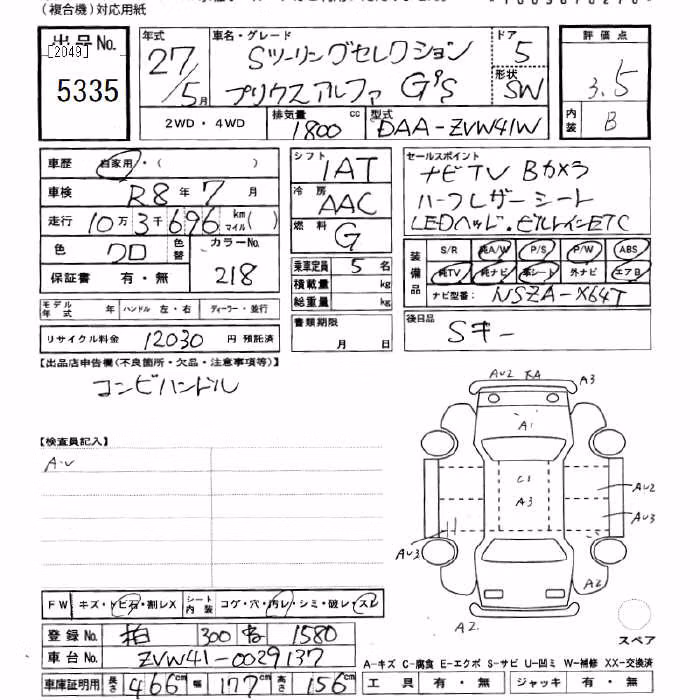 (複合機)対応用紙
出品No. [2049] 5335
年式 27/5月
車名・グレード Sツーリングセレクション
プリウスアルファ G'S
ドア 5
形状 SW
評価点 3.5
内装 B
2WD・4WD 排気量 1800 cc 型式 DAA-ZVW41W
車歴 自家用・( )
車検 R8年 7月
走行 10万3千696 km マイル( )
色 クロ 色替 カラーNo. 218
保証書 有・無
モデル年式 年 ハンドル 左・右 ディーラー・並行
リサイクル料金 12030 円 預託済
シフト IAT
冷房 AAC
燃料 G
乗車定員 5 名
積載量 kg
総重量 kg
書類期限 月 日
セールスポイント
ナビTV Bカメラ
ハーフレザーシート
LEDヘッド・ビルトインETC
装備品 S/R 純A/W P/S P/W ABS
純TV 純ナビ 革シート 外ナビ エアB
ナビ型番: NSZA-X64T
後日品 Sキー
【出品店申告欄(不良箇所・欠品・注意事項等)】
コンビハンドル
【検査員記入】
A・U
AU2 XA A3
A1
C1
A3
AU2
AU3
AU3
A2
A2
スペア
FW キズ・トビ石・割レX シート内装 コゲ・穴・汚レ・シミ・破レ・スレ
登録No. 柏 300 1580
車台No. ZVW41-0029137
車庫証明用 長さ 466cm 幅 177cm 高さ 156cm
A-キズ C-腐食 E-エクボ S-サビ U-凹ミ W-補修 XX-交換済
工具 有・無 ジャッキ 有・無